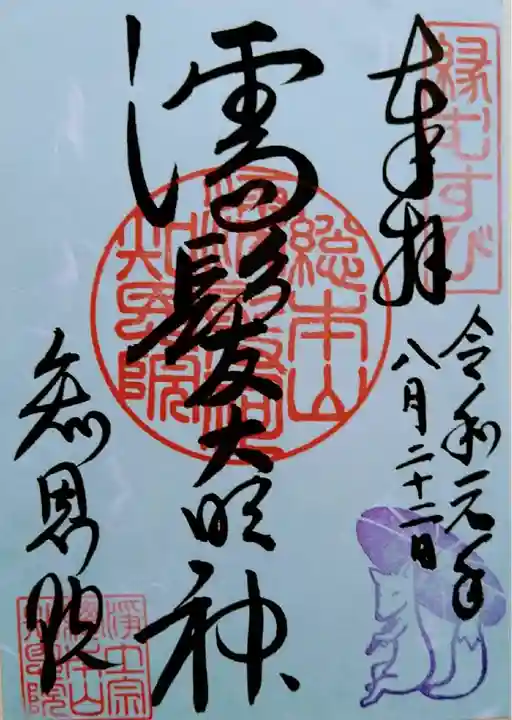 縁むすび
奉拝
令和元年
八月二十二日
濡髪大明神
総本山
知恩院
知恩院
浄土宗
総本山
知恩院